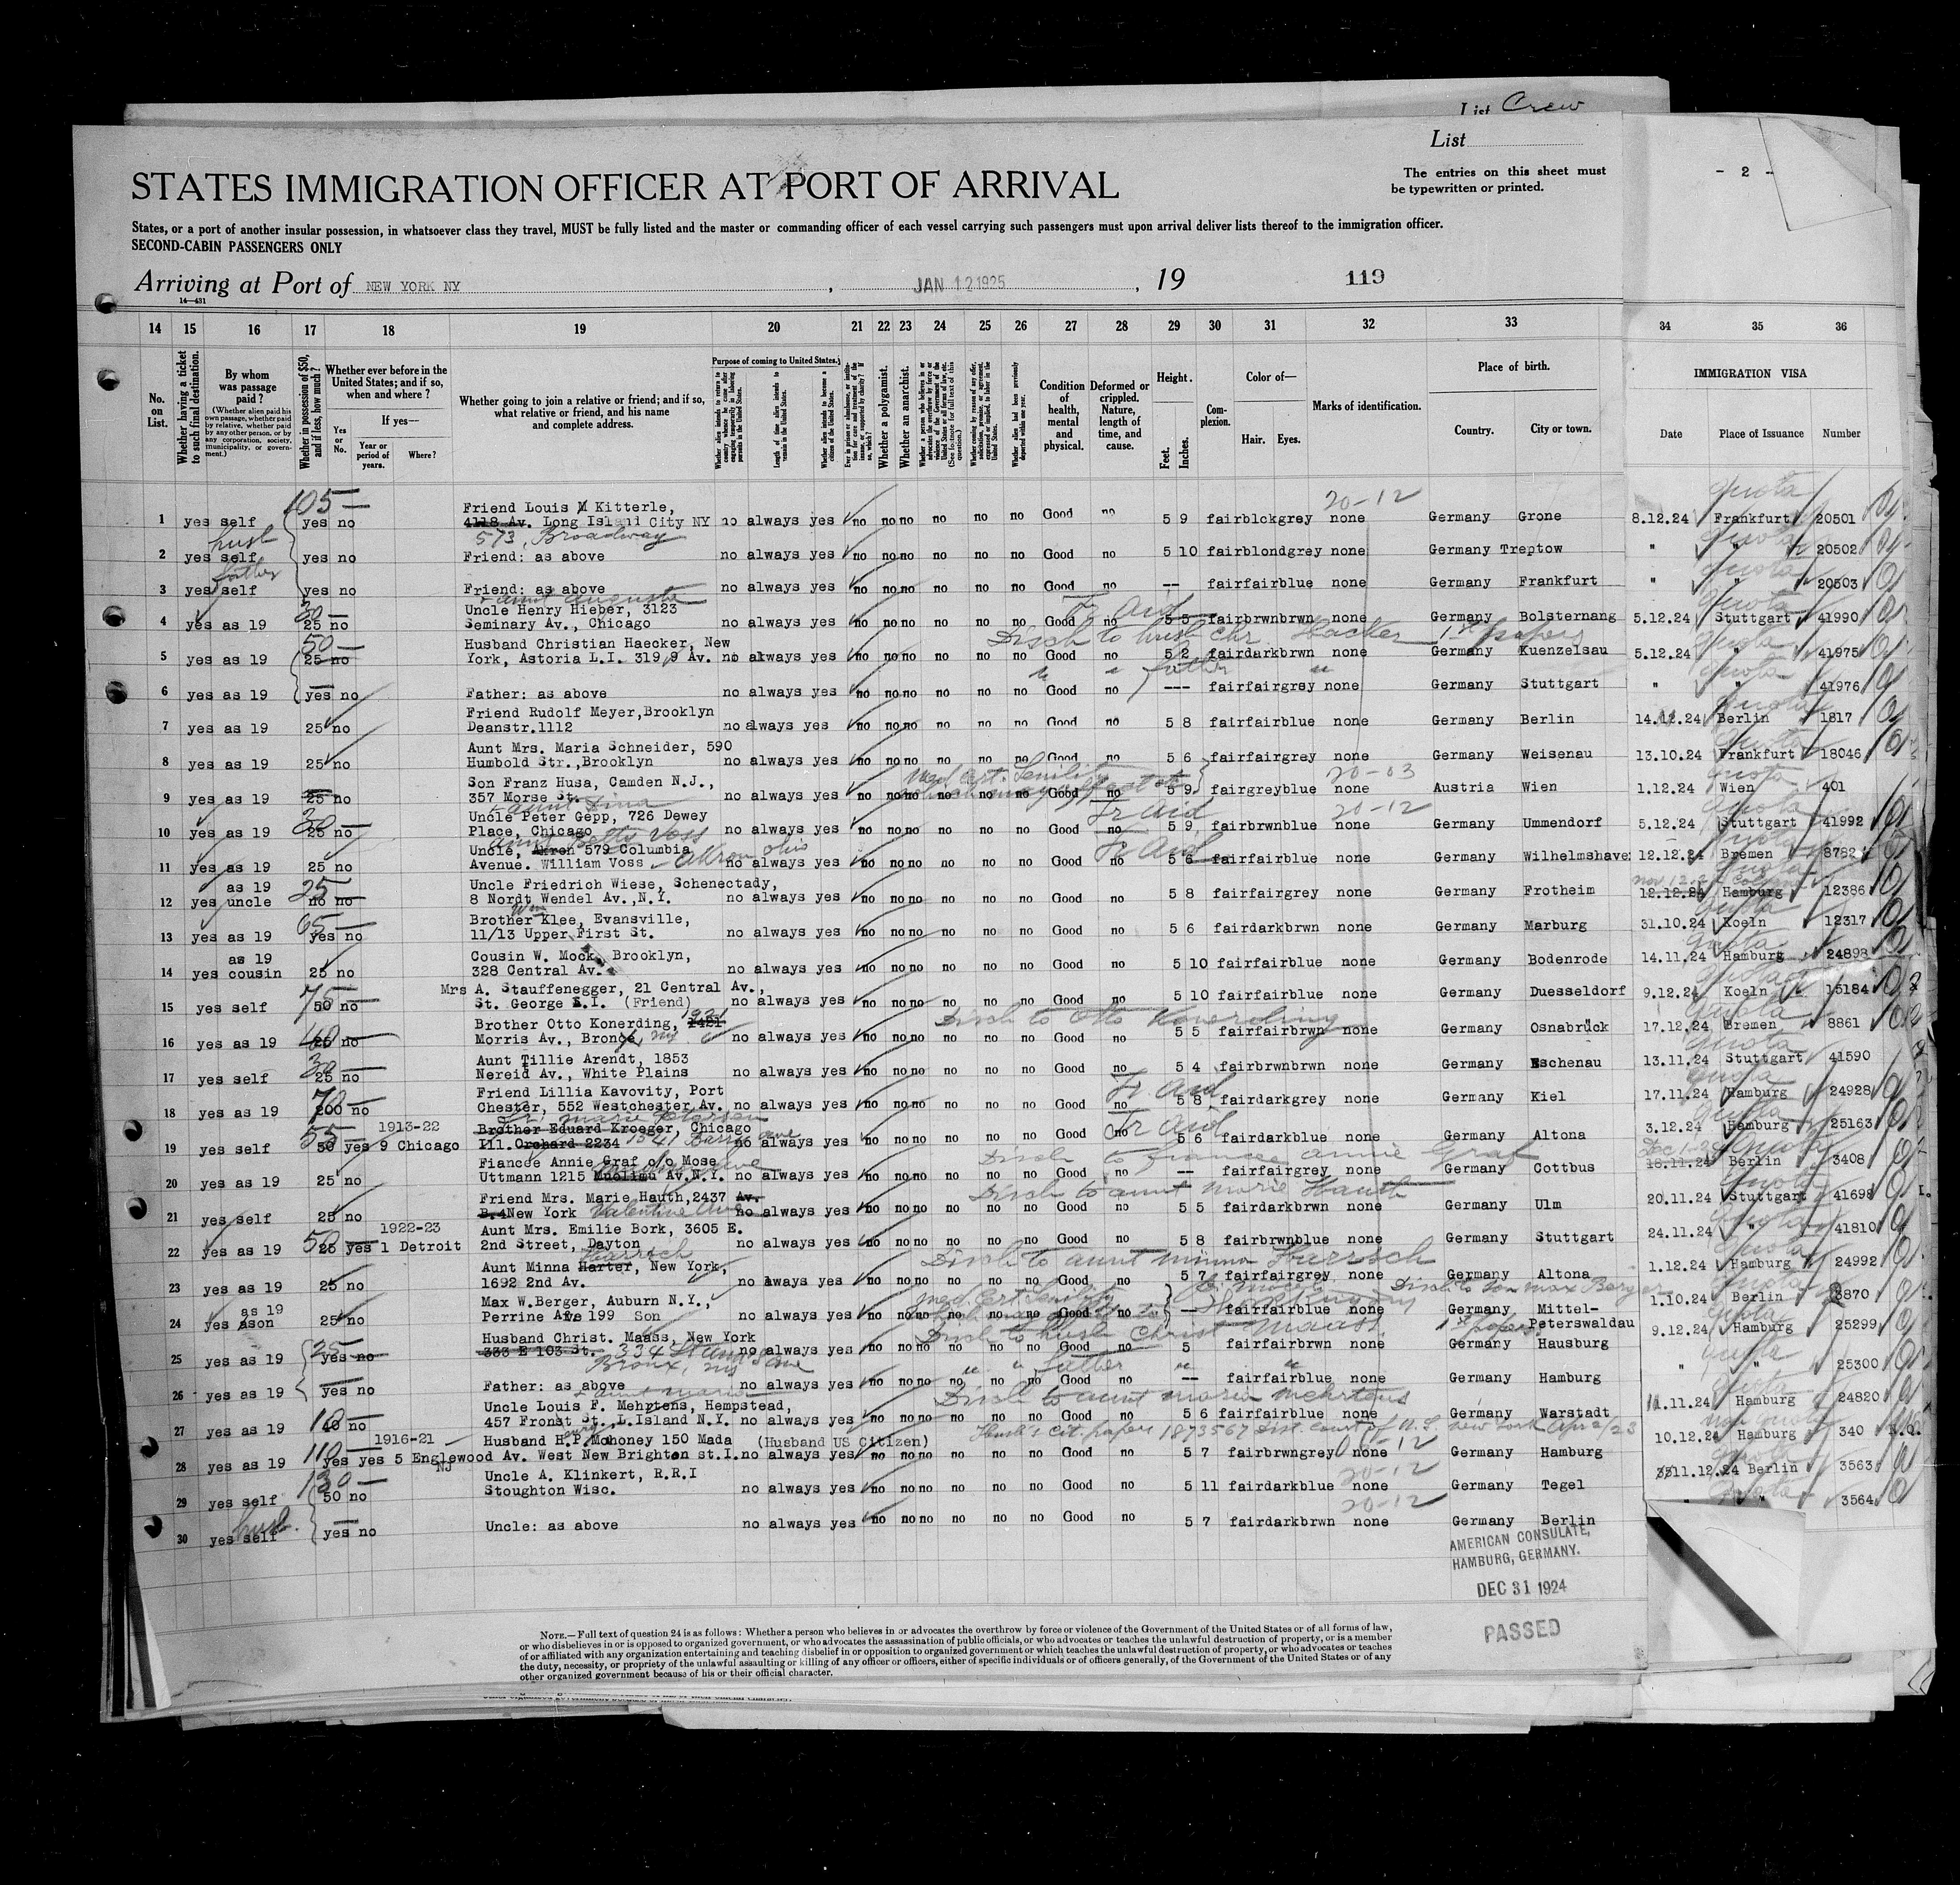 List Crew
List
- 2 -
The entries on this sheet must
be typewritten or printed.
STATES IMMIGRATION OFFICER AT PORT OF ARRIVAL
States, or a port of another insular possession, in whatsoever class they travel, MUST be fully listed and the master or commanding officer of each vessel carrying such passengers must upon arrival deliver lists thereof to the immigration officer.
SECOND-CABIN PASSENGERS ONLY
Arriving at Port of NEW YORK NY , JAN 12 1925 , 19 119
14—431
14 15 16 17 18 19 20 21 22 23 24 25 26 27 28 29 30 31 32 33 34 35 36
No. on List.
Whether having a ticket to such final destination.
By whom was passage paid?
(Whether alien paid his own passage, whether paid by relative, whether paid by any other person, or by any corporation, society, municipality, or government.)
Whether in possession of $50, and if less, how much?
Whether ever before in the United States; and if so, when and where?
If yes—
Yes or No.
Year or period of years.
Where?
Whether going to join a relative or friend; and if so, what relative or friend, and his name and complete address.
Purpose of coming to United States.
Length of time alien intends to remain in the United States.
Whether alien intends to become a citizen of the United States.
Whether a polygamist.
Whether an anarchist.
Condition of health, mental and physical.
Deformed or crippled. Nature, length of time, and cause.
Height.
Feet. Inches.
Complexion.
Color of—
Hair. Eyes.
Marks of identification.
Place of birth.
Country. City or town.
IMMIGRATION VISA
Date Place of Issuance Number
105— Friend Louis M Kitterle, 20-12 quota
1 yes self yes no 4118 Av. Long Island City NY no always yes no no no no no no Good no 5 9 fair blck grey none Germany Grone 8.12.24 Frankfurt 20501
husb 573, Broadway
2 yes self yes no Friend: as above no always yes no no no no no no Good no 5 10 fair blond grey none Germany Treptow " " 20502
father
3 yes self yes no Friend: as above no always yes no no no no no no Good no -- fair fair blue none Germany Frankfurt " " 20503
+ aunt Auguste
Uncle Henry Hieber, 3123 Tr Aid
4 yes as 19 25 no Seminary Av., Chicago no always yes no no no no no no Good no 5 5 fair brwn brwn none Germany Bolsternang 5.12.24 Stuttgart 41990
50— Husband Christian Haecker, New Disch to husb Chr. Hacker 1st papers
5 yes as 19 25 no York, Astoria L.I. 319,9 Av. no always yes no no no no no no Good no 5 2 fair dark brwn none Germany Kuenzelsau 5.12.24 " 41975
" " father "
6 yes as 19 yes no Father: as above no always yes no no no no no no Good no --- fair fair grey none Germany Stuttgart " " 41976
Friend Rudolf Meyer, Brooklyn
7 yes as 19 25 no Deanstr.1112 no always yes no no no no no no Good no 5 8 fair fair blue none Germany Berlin 14.12.24 Berlin 1817
Aunt Mrs. Maria Schneider, 590
8 yes as 19 25 no Humbold Str., Brooklyn no always yes no no no no no no Good no 5 6 fair fair grey none Germany Weisenau 13.10.24 Frankfurt 18046
Son Franz Husa, Camden N.J., Med Cert. Senility 20-03
9 yes as 19 25 no 357 Morse St. no always yes no no no no no no Good no 5 9 fair grey blue none Austria Wien 1.12.24 Wien 401
Uncle Peter Gepp, 726 Dewey Tr Aid 20-12
10 yes as 19 25 no Place, Chicago no always yes no no no no no no Good no 5 9 fair brwn blue none Germany Ummendorf 5.12.24 Stuttgart 41992
aunt Betty Voss
Uncle, Akron 579 Columbia Tr Aid
11 yes as 19 25 no Avenue. William Voss - Akron Ohio no always yes no no no no no no Good no 5 6 fair fair blue none Germany Wilhelmshave 12.12.24 Bremen 8782
as 19 25— Uncle Friedrich Wiese, Schenectady,
12 yes uncle no no 8 Nordt Wendel Av.,N.Y. no always yes no no no no no no Good no 5 8 fair fair grey none Germany Frotheim 12.12.24 Hamburg 12386
65— Brother Wm Klee, Evansville,
13 yes as 19 yes no 11/13 Upper First St. no always yes no no no no no no Good no 5 6 fair dark brwn none Germany Marburg 31.10.24 Koeln 12317
as 19 Cousin W. Mock, Brooklyn,
14 yes cousin 25 no 328 Central Av. no always yes no no no no no no Good no 5 10 fair fair blue none Germany Bodenrode 14.11.24 Hamburg 24898
75— Mrs A. Stauffenegger, 21 Central Av.,
15 yes self 50 no St. George S.I. (Friend) no always yes no no no no no no Good no 5 10 fair fair blue none Germany Duesseldorf 9.12.24 Koeln 15184
Brother Otto Konerding, 1421 Disch to Otto Konerding
16 yes as 19 25 no Morris Av., Bronx, NY no always yes no no no no no no Good no 5 5 fair fair brwn none Germany Osnabrück 17.12.24 Bremen 8861
30— Aunt Tillie Arendt, 1853
17 yes self 25 no Nereid Av., White Plains no always yes no no no no no no Good no 5 4 fair brwn brwn none Germany Eschenau 13.11.24 Stuttgart 41590
70— Friend Lillia Kavovity, Port Tr. Aid
18 yes as 19 200 no Chester, 552 Westchester Av. no always yes no no no no no no Good no 5 8 fair dark grey none Germany Kiel 17.11.24 Hamburg 24928
55— 1913-22 Brother Eduard Kroeger, Chicago Tr Aid
19 yes self 50 yes 9 Chicago Ill. Orchard 2234 no always yes no no no no no no Good no 5 6 fair dark blue none Germany Altona 3.12.24 Hamburg 25163
Fiancee Annie Graf o/o Mose Disch to fiancee Annie Graf
20 yes as 19 25 no Uttmann 1215 Av.N.Y. no always yes no no no no no no Good no -- fair fair grey none Germany Cottbus 18.11.24 Berlin 3408
Friend Mrs. Marie Hauth,2437 Av. Disch to aunt Marie Hauth
21 yes self 25 no B.4 New York Valentine Ave no always yes no no no no no no Good no 5 5 fair dark brwn none Germany Ulm 20.11.24 Stuttgart 41698
50— 1922-23 Aunt Mrs. Emilie Bork, 3605 E.
22 yes as 19 25 yes 1 Detroit 2nd Street, Dayton no always yes no no no no no no Good no 5 8 fair brwn blue none Germany Stuttgart 24.11.24 " 41810
Harrsch
Aunt Minna Harter, New York, Disch to aunt Minna Harrsch
23 yes as 19 25 no 1692 2nd Av. no always yes no no no no no no Good no 5 7 fair fair grey none Germany Altona 1.12.24 Hamburg 24992
as 19 Max W.Berger, Auburn N.Y., Med Cert. Senility Disch to son Max Berger
24 yes ason 25 no Perrine Ave 199 Son no always yes no no no no no no Good no -- fair fair blue none Germany Mittel-Peterswaldau 1.10.24 Berlin 3870
25— Husband Christ. Maass, New York Disch to husb Christ Maass 1st papers
25 yes as 19 yes no 333 E 103 St. 334 no always yes no no no no no no Good no 5 fair fair brwn none Germany Hausburg 9.12.24 Hamburg 25299
Bronx, NY
" " father " "
26 yes as 19 yes no Father: as above no always yes no no no no no no Good no -- fair fair blue none Germany Hamburg " " 25300
+ aunt Maria
Uncle Louis F. Mehrtens, Hempstead, Disch to aunt Maria Mehrtens
27 yes as 19 40 no 457 Fronst St.,L.Island N.Y. no always yes no no no no no no Good no 5 6 fair fair blue none Germany Warstadt 11.11.24 Hamburg 24820
110— 1916-21 Husband H.P. Mohoney 150 Mada (Husband US Citizen) Husb's cit. papers 1873567 Dist. Court of U.S. New York Apr 2/23
28 yes as 19 yes yes 5 Englewood NJ Av. West New Brighton st.I. no always yes no no no no no no Good no 5 7 fair brwn grey none Germany Hamburg 10.12.24 Hamburg 340 N.Q.
130— Uncle A. Klinkert, R.R.I 20-12
29 yes self 50 no Stoughton Wisc. no always yes no no no no no no Good no 5 11 fair dark blue none Germany Tegel 11.12.24 Berlin 3563
husb. 20-12
30 yes self yes no Uncle: as above no always yes no no no no no no Good no 5 7 fair dark brwn none Germany Berlin " " 3564
AMERICAN CONSULATE,
HAMBURG, GERMANY.
DEC 31 1924
PASSED
NOTE.—Full text of question 24 is as follows: Whether a person who believes in or advocates the overthrow by force or violence of the Government of the United States or of all forms of law,
or who disbelieves in or is opposed to organized government, or who advocates the assassination of public officials, or who advocates or teaches the unlawful destruction of property, or is a member
of or affiliated with any organization entertaining and teaching disbelief in or opposition to organized government or which teaches the unlawful destruction of property, or who advocates or teaches
the duty, necessity, or propriety of the unlawful assaulting or killing of any officer or officers, either of specific individuals or of officers generally, of the Government of the United States or of any
other organized government because of his or their official character.